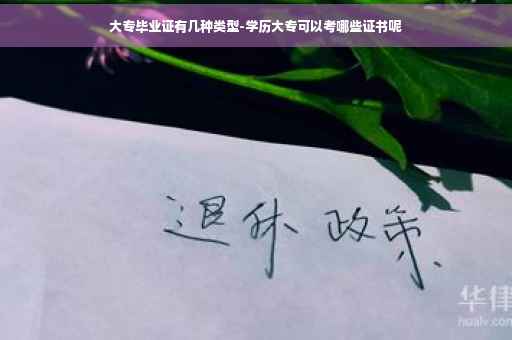 大专毕业证有几种类型-学历大专可以考哪些证书呢
退休 政策
华律
hualv.com